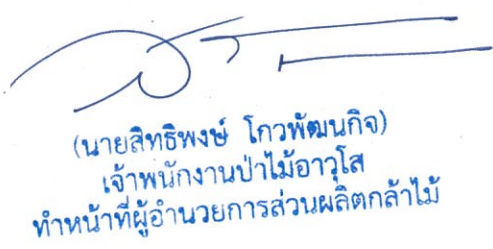 (นายสิทธิพงษ์ โกวพัฒนกิจ)
เจ้าพนักงานป่าไม้อาวุโส
ทำหน้าที่ผู้อำนวยการส่วนผลิตกล้าไม้